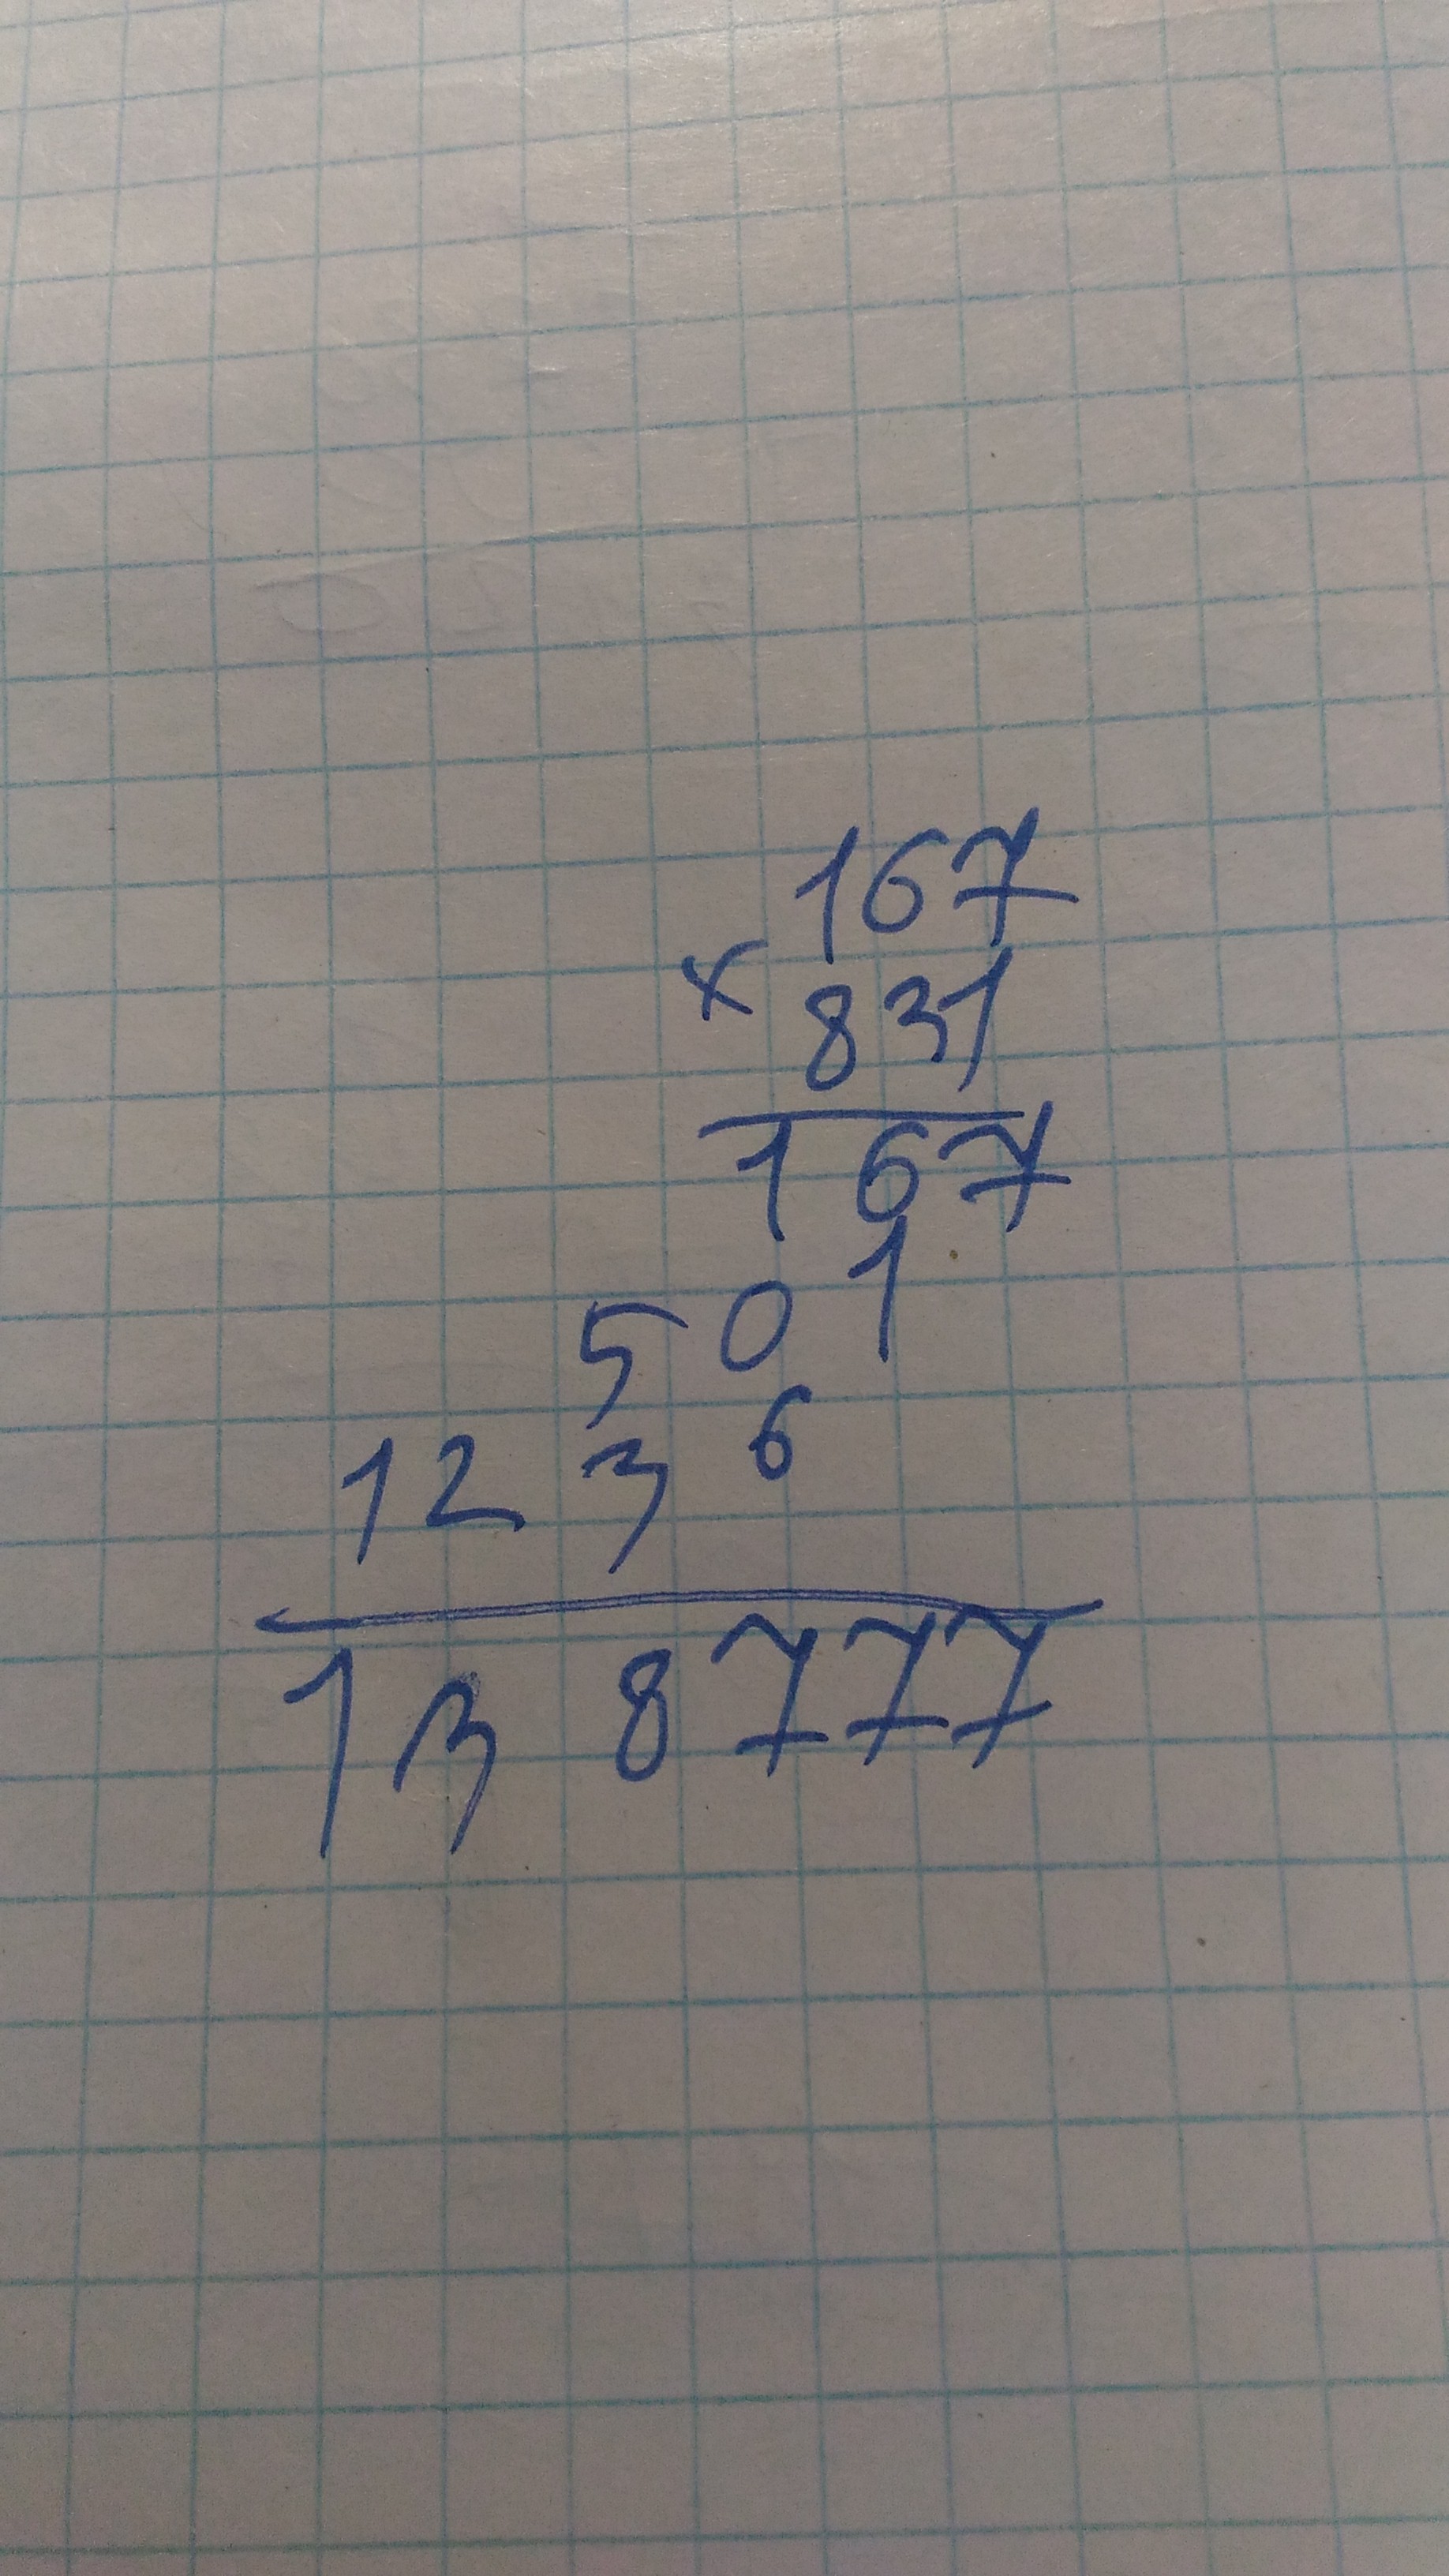 167
× 831
167
501
1236
138777